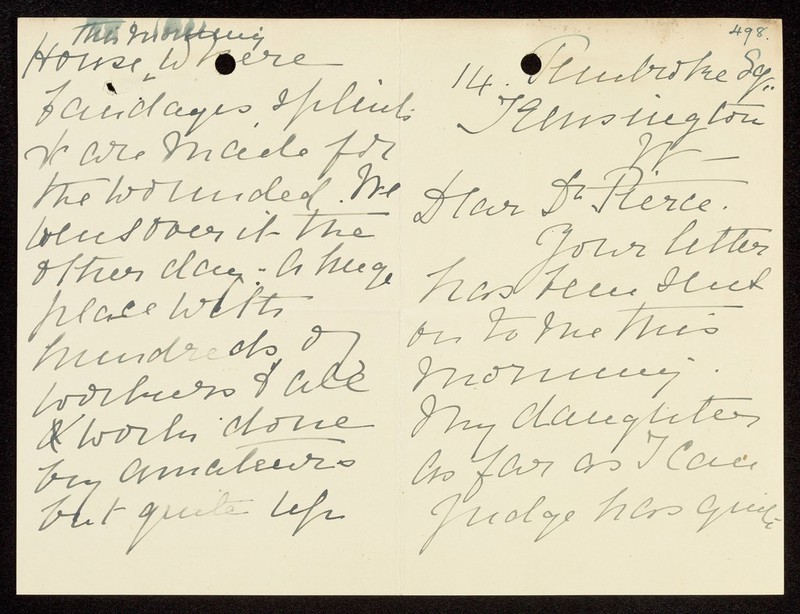 498.
14. Pembroke Sq.
Kensington
W
Dear Dr Pierce.
Your letter
has been sent
on to me this
morning.
My daughter
as far as I can
judge has quite
this morning
House, where
bandages, splints
& are made for
the wounded. We
went over it the
other day - a huge
place with
hundreds of
workers & all
& work done
by amateurs
but quite up